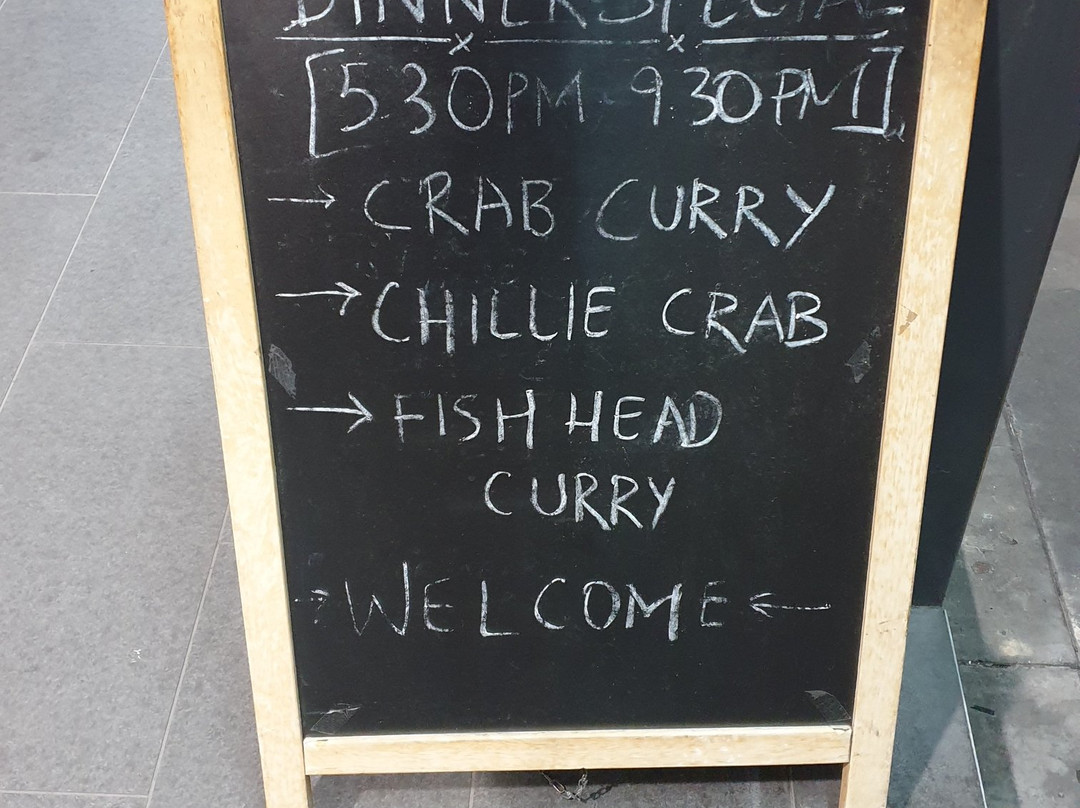 DINNER SPECIAL
[5.30PM - 9.30PM]
→ CRAB CURRY
→ CHILLIE CRAB
→ FISH HEAD
CURRY
→ WELCOME ←